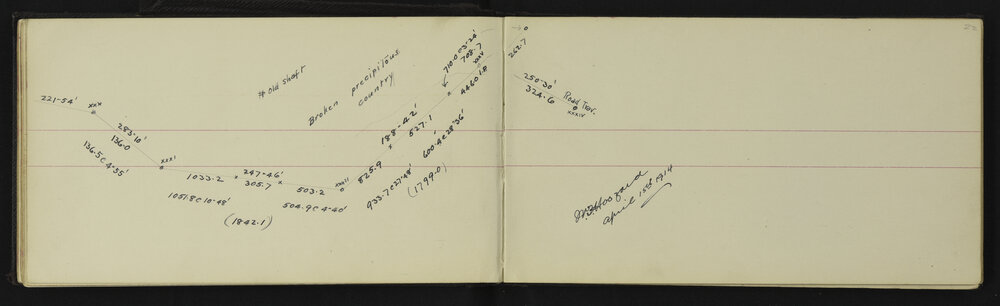 221-54'
XXX
283-10'
136.0
136.5 @ 4-35'
XXXI
1033.2
1051.8 @ 10-48'
247-46'
305.7
(1842.1)
503.2
504.9 @ 4-40'
XXXII
825.9
933.7 @ 27-48'
(1799.0)
188-42'
527.1
600.4 @ 28°36'
# Old Shaft
Broken precipitous
country
708.7
XXXIV
262.7
250-30'
324.6
Road Trav.
XXXIV
April 15th 1914
22